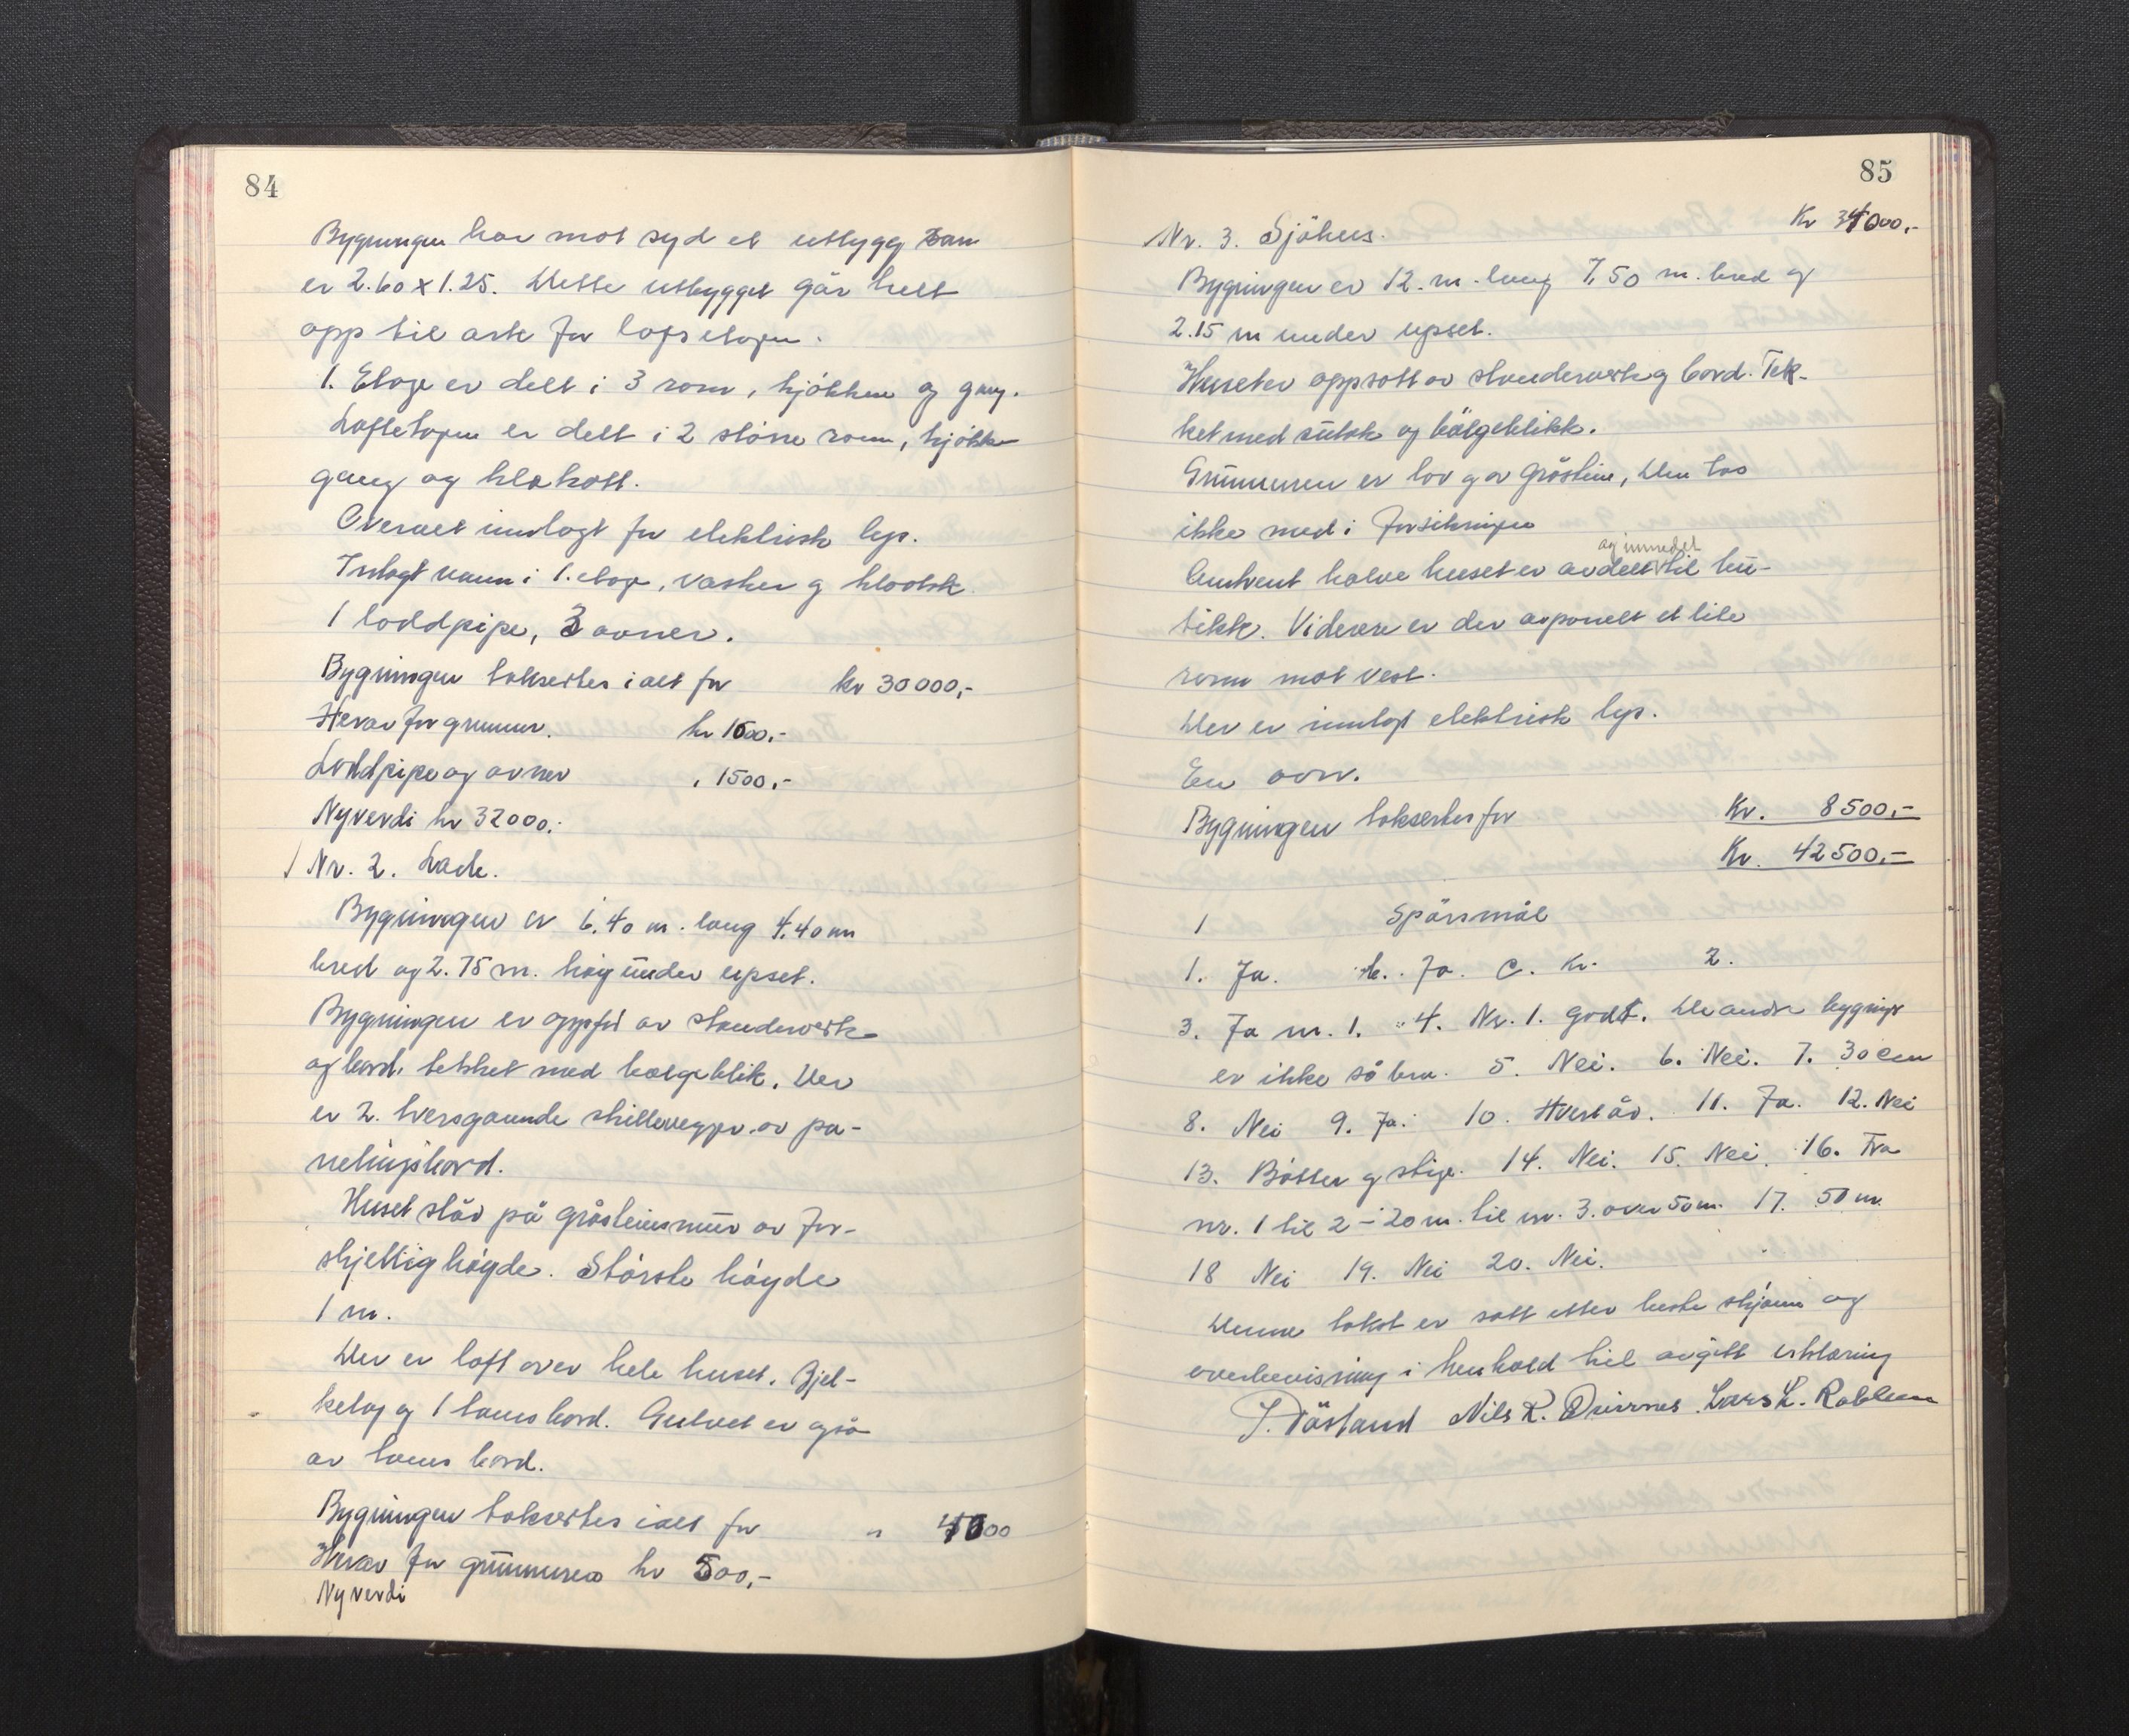 84
Bygningen har mot syd et utbygg som
er 2.60 x 1.25. Dette utbygget går helt
opp til ark for loftsetagen.
1. Etage er delt i 3 rom, kjökken og gang.
Loftetagen er delt i 2 större rom, kjökken
gang og klekott.
Overalt innlagt for elektrisk lys.
Inlagt vann i 1. etage, vasker og klosett
1 loddpipe, 3 ovner.
Bygningen takseres i alt for kr 30000,-
Herav for grunnmur. kr 1500,-
Loddpipe og ovner " 1500,-
Nyverdi kr 32000,-
/ Nr. 2. Lade.
Bygningen er 6.40 m. lang 4.40 m
bred og 2.75 m. höy under upset.
Bygningen er oppfört av stenderverk
og bord, tekket med bølgeblik. Der
er 2. tversgaende skillevegger av pa-
nelingsbord.
Huset står på gråsteinsmur av for-
skjellig höyde. Störste höyde
1 m.
Der er loft over hele huset. Bjel-
kelag og 1 toms bord. Gulvet er også
av toms bord.
Bygningen takseres i alt for " 4000
Herav for grunnmuren kr 500,-
Nyverdi
85
Kr 34000,-
Nr. 3. Sjöhus.
Bygningen er 12. m. lang 7,50 m. bred og
2.15 m under upset.
Huset er oppsatt av stenderverk og bord. Tek-
ket med sutak og bölgeblikk.
Grunnmuren er lav og av gråstein, den tas
ikke med i forsikringen
og innredet
Omtrent halve huset er avdelt til bu-
tikk. Videre er der avpanelt et lite
rom mot vest.
Der er innlagt elektrisk lys.
En ovn.
Bygningen takseres for Kr. 8500,-
Kr. 42500,-
1 Spörsmål
1. Ja. b. Ja. C. Kr. 2.
3. Ja nr. 1. 4. Nr. 1. godt. De andre bygninger
er ikke så bra. 5. Nei. 6. Nei. 7. 30 cm
8. Nei 9. Ja. 10. Hvert år. 11. Ja. 12. Nei
13. Bötter og stige. 14. Nei. 15. Nei. 16. Fra
nr. 1 til 2 - 20 m. til nr. 3. over 50 m. 17. 50 m.
18 Nei 19. Nei 20. Nei.
Denne takst er satt etter beste skjönn og
overbevisning i henhold til avgitt erklæring
Nils R. Lars L.